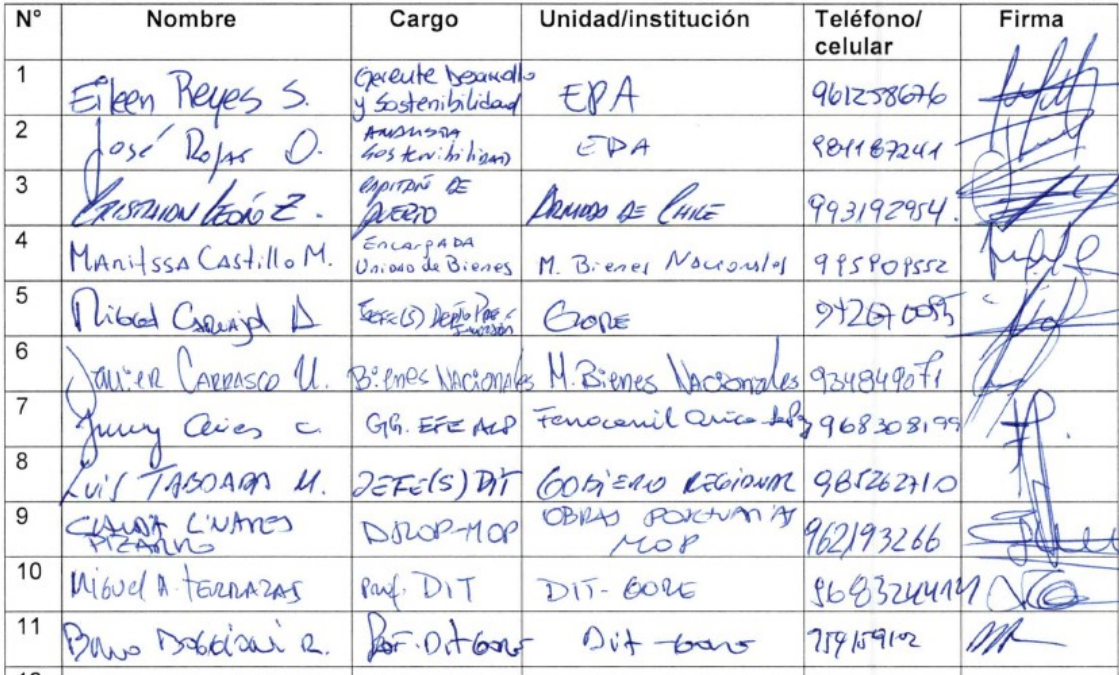 N° Nombre Cargo Unidad/institución Teléfono/ celular Firma
1 Eileen Reyes S. Gerente Desarrollo y Sostenibilidad EPA 961258676
2 José Rojas O. Analista Sostenibilidad EPA 981187241
3 Cristian León Z. Capitán de Puerto Armada de Chile 993192954.
4 Manitssa Castillo M. Encargada Unidad de Bienes M. Bienes Nacionales 995909552
5 Jefe(s) Depto Pre- GORE
6 Javier Carrasco U. Bienes Nacionales M. Bienes Nacionales 934849071
7 Jenny C. GG. EFE ALP Ferrocarril Arica 968308199
8 Luis Taboada M. Jefe(s) DIT Gobierno Regional 985262710
9 Claudia Linares Pizarro DIROP-MOP Obras Portuarias MOP 962193266
10 Miguel A. Terrazas Prof. DIT DIT-GORE
11 Bruno R. Prof. Dit Gore Dit - Gore